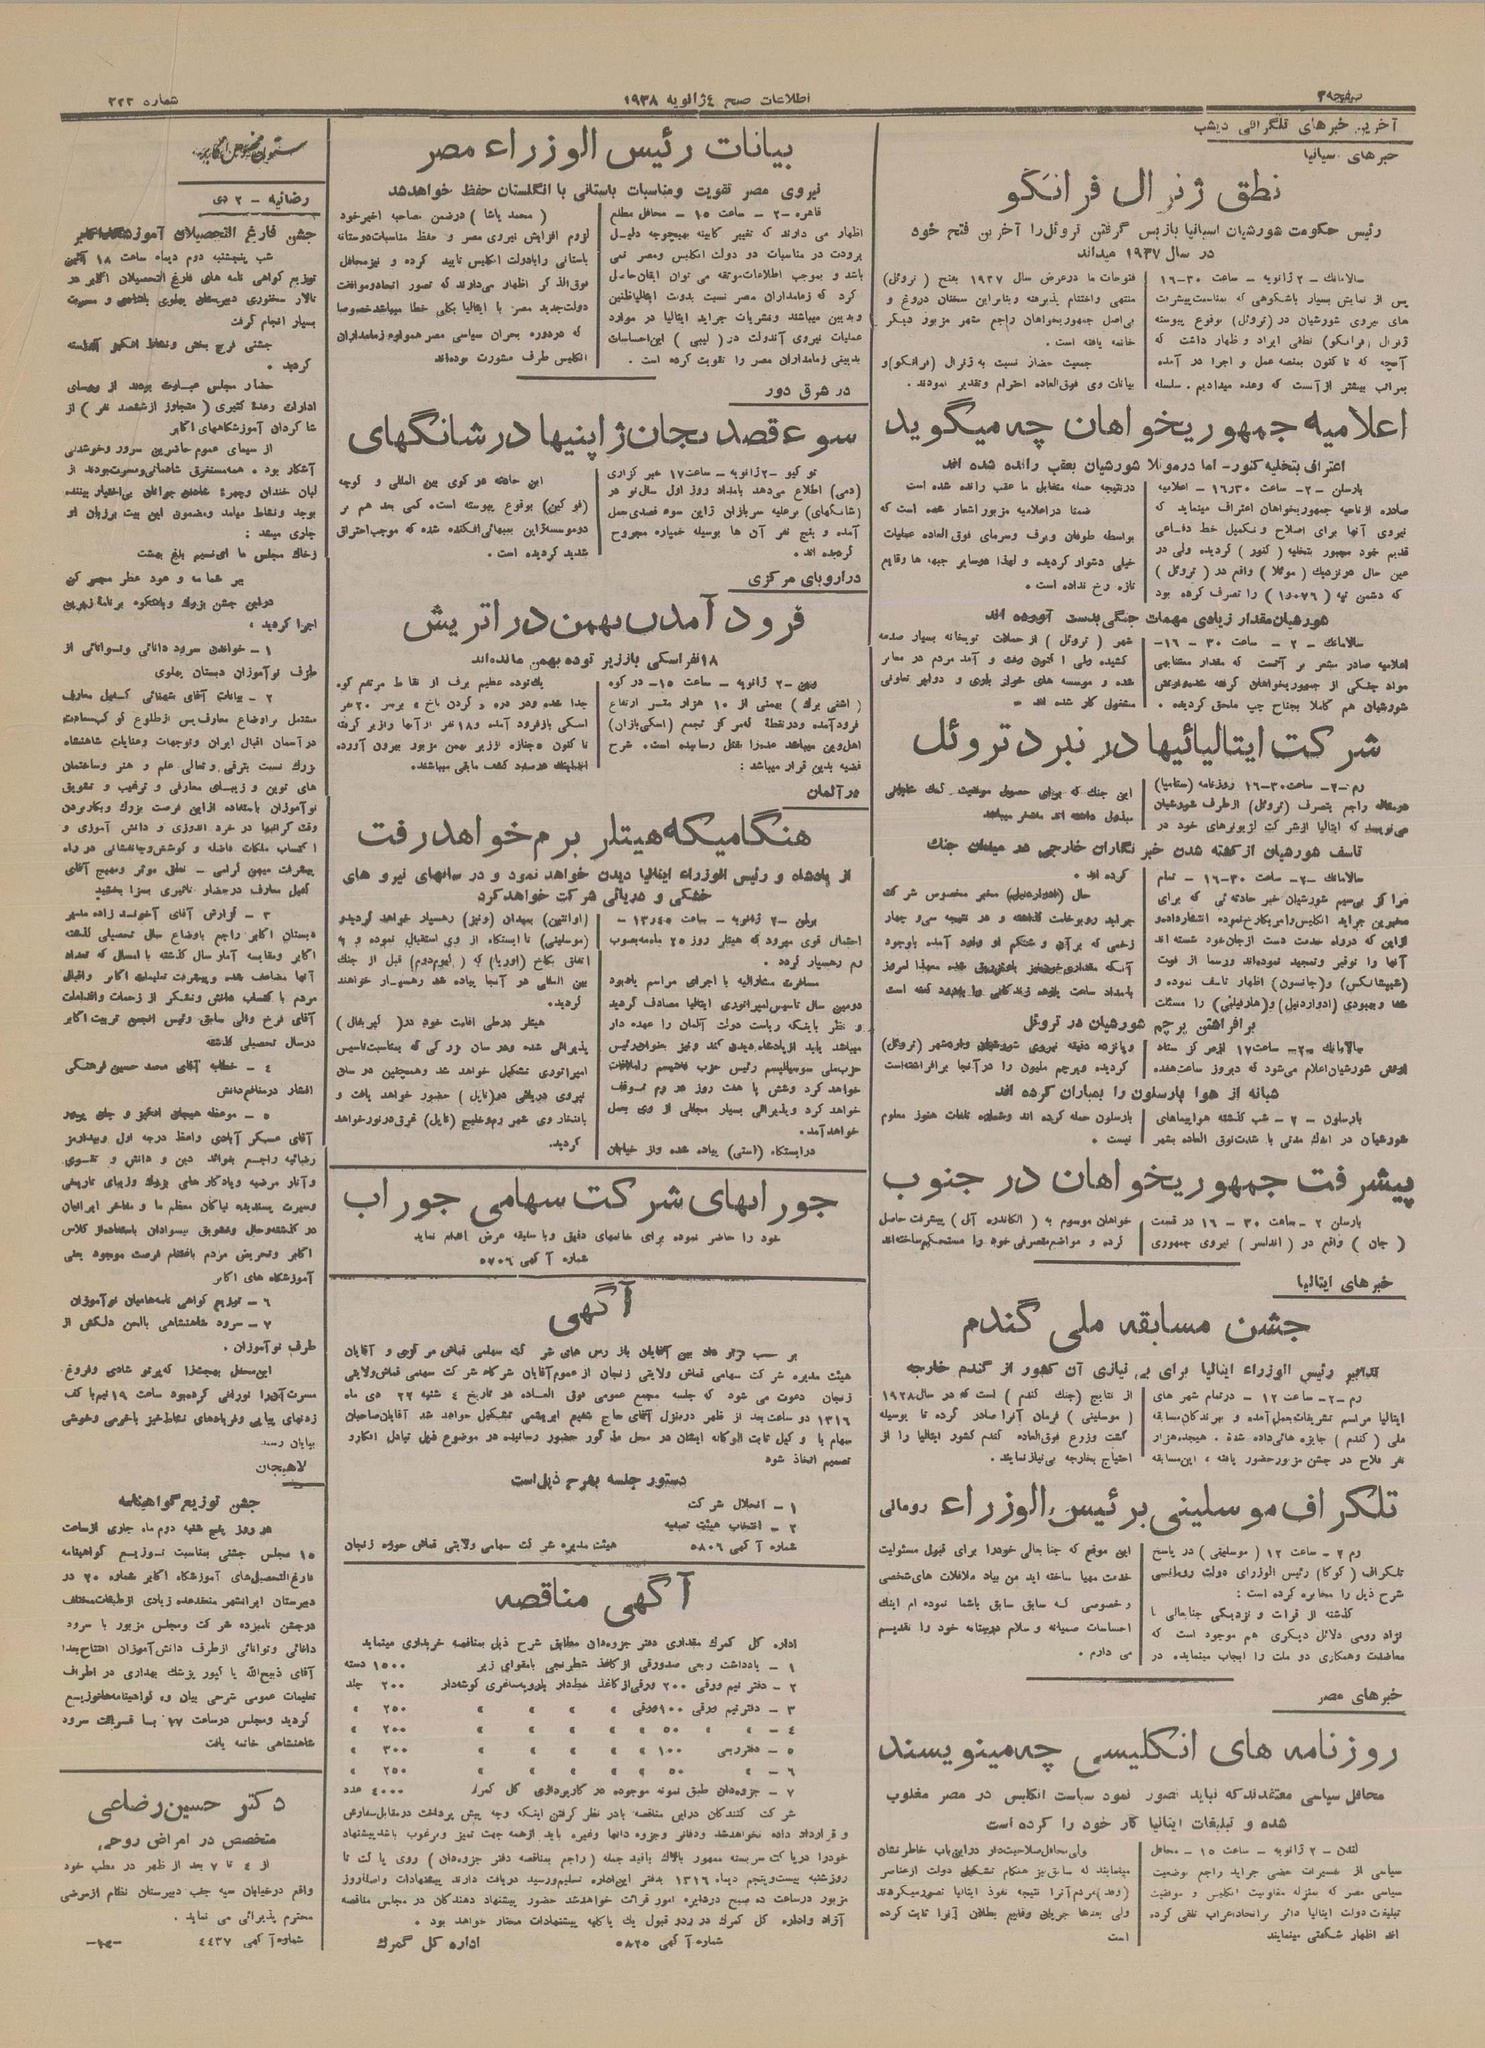 صفحه ۳
اطلاعات صبح ٤ ژانویه ۱۹۳۸
شماره ۳۲۳
آخرین خبرهای تلگرافی دیشب
خبرهای سپانیا
نطق ژنرال فرانکو
رئیس حکومت شورشیان اسپانیا بازپس گرفتن تروئل را آخرین فتح خود
در سال ۱۹۳۷ میداند
سالامانك - ۲ ژانویه - ساعت ۳۰-۱۶
پس از نمایش بسیار باشکوهی که بمناسبت پیشرفت
های نیروی شورشیان در (تروئل) بوقوع پیوسته
ژنرال (فرانکو) نطقی ایراد و اظهار داشت که
آنچه که تا کنون بمنصه عمل و اجرا در آمده
بمراتب بیشتر از آنست که وعده میدادیم. سلسله
فتوحات ما در عرض سال ۱۹۳۷ بفتح (تروئل)
منتهی و اختتام پذیرفته و بنابراین سخنان دروغ و
بی‌اصل جمهوریخواهان راجع بشهر مزبور دیگر
خاتمه یافته است .
جمعیت حضار نسبت به ژنرال (فرانکو) و
بیانات وی فوق‌العاده احترام و تقدیر نمودند.
اعلامیه جمهوریخواهان چه میگوید
اعتراف بتخلیه کنور- اما در موئلا شورشیان بعقب رانده شده اند
بارسلن - ۲- ساعت ۱۶٫۳۰ - اعلامیه
صادره از ناحیه جمهوریخواهان اعتراف مینماید که
نیروی آنها برای اصلاح و تکمیل خط دفاعی
قدیم خود مجبور بتخلیه (کنور) گردیده ولی در
عین حال در نزدیك (موئلا) واقع در (تروئل)
که دشمن تپه (۱٫۰۷۶) را تصرف کرده بود
در نتیجه حمله متقابل ما عقب رانده شده است
ضمنا در اعلامیه مزبور اشعار شده است که
بواسطه طوفان و برف و سرمای فوق العاده عملیات
خیلی دشوار گردیده و لهذا در سایر جبهه ها وقایع
تازه رخ نداده است .
شورشیان مقدار زیادی مهمات جنگی بدست آورده اند
سالامانك - ۲ - ساعت ۳۰ - ۱۶-
اعلامیه صادر مشعر بر آنست که مقدار معتنابهی
مواد جنگی از جمهوریخواهان گرفته شده و ارتش
شورشیان هم کاملا بجناح چپ ملحق گردیده .
شهر (تروئل) از حملات توپخانه بسیار صدمه
کشیده ولی اکنون رفت و آمد مردم در معابر
شده و موسسه های خوار باری و دوایر تعاونی
مشغول کار شده اند .
شرکت ایتالیائیها در نبرد تروئل
رم -۲- ساعت ۳۰-۱۶ روزنامه (ستامپا)
راجع بتصرف (تروئل) از طرف شورشیان
می‌نویسد که ایتالیا از شرکت لژیونرهای خود در
این جنك که برای حصول موفقیت
مبذول داشته اند مفتخر میباشد
تاسف شورشیان از کشته شدن خبر نگاران خارجی در میدان جنك
سالامانك -۲- ساعت ۳۰-۱۶ - تمام
مراکز بی‌سیم شورشیان خبر حادثه ئی که برای
مخبرین جراید انگلیس و امریکا رخ نموده انتشار داده و
از این که در راه خدمت دست از جان خود شسته اند
آنها را توقیر و تمجید نموده‌اند و رسما از فوت
(شیپشانکس) و (جانسون) اظهار تاسف نموده و
شفا و بهبودی (ادوارد نیل) و (فیلبی) را مسئلت
کرده اند .
حال (ادوارد نیل) مخبر مخصوص شرکت
جراید رو بوخامت گذاشته و در نتیجه سی و چهار
زخمی که بر ران و شکم او وارد آمده باوجود
آنکه مقداری خون نیز باو تزریق شده معهذا امروز
بامداد ساعت یازده زندگانی را بدرود گفته است
بر افراشتن پرچم شورشیان در تروئل
سالامانك -۲- ساعت ۱۷ از مرکز ستاد
ارتش شورشیان اعلام می‌شود که دیروز ساعت هفده
و پانزده دقیقه نیروی شورشیان وارد شهر (تروئل)
گردیده و پرچم ملیون را در آنجا برافراشته است
شبانه از هوا بارسلون را بمباران کرده اند
بارسلون - ۲ - شب گذشته هواپیماهای
شورشیان در اندك مدتی با شدت فوق العاده بشهر
بارسلون حمله کرده اند و شماره تلفات هنوز معلوم
نیست .
پیشرفت جمهوریخواهان در جنوب
بارسلن ۲ - ساعت ۳۰ - ۱۶ در قسمت
(جان) واقع در (اندلس) نیروی جمهوری
خواهان موسوم به (الکاندره آل) پیشرفت حاصل
کرده و مواضع متصرفی خود را مستحکم ساخته‌اند
خبرهای ایتالیا
جشن مسابقه ملی گندم
تدابیر رئیس الوزراء ایتالیا برای بی نیازی آن کشور از گندم خارجه
رم -۲- ساعت ۱۲ - در تمام شهر های
ایتالیا مراسم تشریفات بعمل آمده و برندگان مسابقه
ملی (گندم) جایزه هائی داده شده . هیجده هزار
نفر فلاح در جشن مزبور حضور یافته ، این مسابقه
از نتایج (جنك گندم) است که در سال ۱۹۲۸
(موسلینی) فرمان آنرا صادر کرده تا بوسیله
کشت و زرع فوق‌العاده گندم کشور ایتالیا را از
احتیاج بخارجه بی‌نیاز نمایند.
تلگراف موسلینی بر ئیس الوزراء رومانی
رم ۲ - ساعت ۱۲ (موسلینی) در پاسخ
تلگراف (گوگا) رئیس الوزرای دولت رومانی
شرح ذیل را مخابره کرده است :
گذشته از قرابت و نزدیکی جنابعالی با
نژاد رومی دلائل دیگری هم موجود است که
معاضدت و همکاری دو ملت را ایجاب مینماید. در
این موقع که جنابعالی خود را برای قبول مسئولیت
خدمت مهیا ساخته اید من بیاد ملاقات های شخصی
و خصوصی که سابق باشما نموده ام اینك
احساسات صمیمانه و سلام دوستانه خود را تقدیم
می دارم .
خبرهای مصر
روزنامه های انگلیسی چه مینویسند
محافل سیاسی معتقدند که نباید تصور نمود سیاست انگلیس در مصر مغلوب
شده و تبلیغات ایتالیا کار خود را کرده است
لندن - ۲ ژانویه - ساعت ۱۵ - محافل
سیاسی از تفسیرات بعضی جراید راجع بوضعیت
سیاسی مصر که بمنزله مغلوبیت انگلیس و موفقیت
تبلیغات دولت ایتالیا دائر بر اتحاد اعراب تلقی کرده
اند اظهار شگفتی مینمایند
ولی محافل صلاحیت‌دار در این باب خاطر نشان
مینمایند که سابق نیز هنگام تشکیل دولت از عناصر
(وفد) مردم آنرا نتیجه نفوذ ایتالیا تصور میکردند
ولی بعدها جریان وقایع بطلان آنرا ثابت کرده
است
بیانات رئیس الوزراء مصر
نیروی مصر تقویت و مناسبات باستانی با انگلستان حفظ خواهد شد
قاهره -۲- ساعت ۱۵ - محافل مطلع
اظهار می دارند که تغییر کابینه بهیچوجه دلیل
برودت در مناسبات دو دولت انگلیس و مصر نمی
باشد و بموجب اطلاعات موثقه می توان ایقان حاصل
کرد که زمامداران مصر نسبت بدولت ایتالیا ظنین
و بدبین میباشند و نشریات جراید ایتالیا در موارد
عملیات نیروی آندولت در (لیبی) این احساسات
بدبینی زمامداران مصر را تقویت کرده است .
(محمد پاشا) در ضمن مصاحبه اخیر خود
لزوم افزایش نیروی مصر و حفظ مناسبات دوستانه
باستانی را با دولت انگلیس تایید کرده و نیز محافل
فوق‌الذکر اظهار می‌دارند که تصور اتحاد و موافقت
دولت جدید مصر با ایتالیا بکلی خطا میباشد خصوصا
که در دوره بحران سیاسی مصر همواره زمامداران
انگلیس طرف مشورت بوده‌اند
در شرق دور
سوء قصد بجان ژاپنیها در شانگهای
توکیو -۲ ژانویه - ساعت ۱۷ خبر گزاری
(دمی) اطلاع می‌دهد بامداد روز اول سال نو در
(شانگهای) بر علیه سربازان ژاپن سوء قصدی بعمل
آمده و پنج نفر آن ها بوسیله خمپاره مجروح
گردیده اند .
این حادثه در کوی بین المللی و کوچه
(فو کین) بوقوع پیوسته است. کمی بعد هم بر
دو موسسه ژاپن بمبهائی افکنده شده که موجب احتراق
شدید گردیده است .
در اروپای مرکزی
فرود آمدن بهمن در اتریش
۱۸ نفر اسکی باز زیر توده بهمن مانده‌اند
وین -۲ ژانویه - ساعت ۱۵- در کوه
(اشنی برك) بهمنی از ۱۰ هزار متر ارتفاع
فرود آمده و در نقطه که مرکز تجمع (اسکی بازان)
اهل وین میباشد عده را بقتل رسانیده است. شرح
قضیه بدین قرار میباشد :
یك توده عظیم برف از نقاط مرتفع کوه
جدا شده و در دره و گردن باخ بر سر ۲۰ نفر
اسکی باز فرود آمده و ۱۸ نفر از آنها را زیر گرفته
تا کنون ۵ جنازه از زیر بهمن مزبور بیرون آورده
اند و در صدد کشف مابقی میباشند.
در آلمان
هنگامیکه هیتلر برم خواهد رفت
از پادشاه و رئیس الوزراء ایتالیا دیدن خواهد نمود و در سانهای نیرو های
خشکی و دریائی شرکت خواهد کرد
برلن -۲ ژانویه - ساعت ۱۳٫٤۵ -
احتمال قوی میرود که هیتلر روز ۲۵ ماه مه بصوب
رم رهسپار گردد .
مسافرت مشارالیه با اجرای مراسم یادبود
دومین سال تاسیس امپراتوری ایتالیا مصادف گردید
و نظر باینکه ریاست دولت آلمان را عهده دار
میباشد باید از پادشاه دیدن کند و نیز بعنوان رئیس
حزب ملی سوسیالیسم رئیس حزب فاشیسم را ملاقات
خواهد کرد و شش یا هفت روز در رم توقف
خواهد کرد و پذیرائی بسیار مجللی از وی بعمل
خواهد آمد.
در ایستگاه (استی) پیاده شده و از خیابان
(اوانتین) بمیدان (ونیز) رهسپار خواهد گردید و
(موسلینی) تا ایستگاه از وی استقبال نموده و به
اتفاق بکاخ (اوریا) که (لیوم دوم) قبل از جنك
بین المللی در آنجا پیاده شد رهسپار خواهند
گردید .
هیتلر در طی اقامت خود در (کیرینال)
پذیرائی شده و در سان بزرگی که بمناسبت تاسیس
امپراتوری تشکیل خواهد شد و همچنین در سان
نیروی دریائی در (ناپل) حضور خواهد یافت و
بافتخار وی شهر رم و خلیج (ناپل) غرق در نور خواهد
گردید.
جورابهای شرکت سهامی جوراب
خود را حاضر نموده برای خانمهای دقیق و با سلیقه عرض اندام نماید
شماره آگهی ۵۷۰۶
آگهی
بر حسب قرار داد بین آقایان باز رس های شرکت سهامی قماش مرکزی و آقایان
هیئت مدیره شرکت سهامی قماش ولایتی زنجان از عموم آقایان شرکاء شرکت سهامی قماش ولایتی
زنجان دعوت می شود که جلسه مجمع عمومی فوق العاده در تاریخ ٤ شنبه ۲۲ دی ماه
۱۳۱۶ دو ساعت بعد از ظهر در منزل آقای حاج شفیع ابریشمی تشکیل خواهد شد آقایان صاحبان
سهام یا وکیل ثابت الوکاله ایشان در محل مذکور حضور رسانیده در موضوع ذیل تبادل افکار و
تصمیم اتخاذ شود
دستور جلسه بشرح ذیل است
۱ - انحلال شرکت
۲ - انتخاب هیئت تصفیه
شماره آگهی ۵۸۰۶
هیئت مدیره شرکت سهامی ولایتی قماش حوزه زنجان
آگهی مناقصه
اداره کل گمرك مقداری دفتر جزوه‌دان مطابق شرح ذیل بمناقصه خریداری مینماید
۱ - یادداشت ربعی صد ورقی از کاغذ شطرنجی با مقوای زیر ۱۵۰۰ دسته
۲ - دفتر نیم ورقی ۲۰۰ ورقی از کاغذ خط‌دار با رویه ساغری گوشه‌دار ۲۰۰ جلد
۳ - دفتر نیم ورقی ۱۰۰ ورقی » » » » » ۲۵۰ »
٤ - » » ۵۰ » » » » » ۲۰۰ »
۵ - دفتر ربعی ۱۰۰ » » » » » ۳۰۰ »
۶ - » ۵۰ » » » » » ۲۵۰ »
۷ - جزوه‌دان طبق نمونه موجوده در کارپردازی کل گمرك ٤۰۰۰ عدد
شرکت کنندگان در این مناقصه باید در نظر گرفتن اینکه وجه پیش پرداخت در مقابل سفارش
و قرارداد داده نخواهد شد و دفاتر و جزوه دانها وغیره باید از همه جهت تمیز و مرغوب باشد پیشنهاد
خود را در پاکت سربسته ممهور بالاك با قید جمله (راجع بمناقصه دفتر جزوه‌دان) روی پاکت تا
روز شنبه بیست و پنجم دیماه ۱۳۱۶ بدفتر این اداره تسلیم و رسید دریافت دارند پیشنهادات واصله روز
مزبور در ساعت ده صبح در دایره امور قرائت خواهد شد حضور پیشنهاد دهندگان در مجلس مناقصه
آزاد و اداره کل گمرك در رد و قبول یك یا کلیه پیشنهادات مختار خواهد بود .
شماره آگهی ۵۸۲۵
اداره کل گمرك
ستون مخصوص اکابر
رضائیه - ۲ دی
جشن فارغ التحصیلان آموزشگاه اکابر
شب پنجشنبه دوم دیماه ساعت ۱۸ آئین
توزیع گواهی نامه های فارغ التحصیلان اکابر در
تالار سخنوری دبیرستان پهلوی با شادی و مسرت
بسیار انجام گرفت
جشنی فرح بخش و نشاط انگیز آراسته
گردید .
حضار مجلس عبارت بودند از روسای
ادارات و عدۀ کثیری (متجاوز از ششصد نفر) از
شاگردان آموزشگاههای اکابر
از سیمای عموم حاضرین سرور و خوشدلی
آشکار بود . همه مستغرق شادمانی و مسرت بودند از
لبان خندان و چهرۀ شادان جوانان بی‌اختیار بیننده
بوجد و نشاط میامد و مضمون این بیت بر زبان او
جاری میشد :
زخاك مجلس ما ای نسیم بلغ بهشت
ببر شمامه و عود عطر مجمر کن
در این جشن بزرك و باشکوه برنامه زیرین
اجرا گردید :
۱ - خواندن سرود دانائی و توانائی از
طرف نوآموزان دبستان پهلوی
۲ - بیانات آقای شهنائی کفیل معارف
مشتمل بر اوضاع معارف پس از طلوع کوکب سعادت
در آسمان اقبال ایران و توجهات و عنایات شاهنشاه
بزرك نسبت بترقی و تعالی علم و هنر و ساختمان
های نوین و زیبای معارفی و ترغیب و تشویق
نوآموزان باستفاده از این فرصت بزرك و بکار بردن
وقت گرانبها در خرد اندوزی و دانش آموزی و
اکتساب ملکات فاضله و کوشش و جانفشانی در راه
پیشرفت میهن گرامی - نطق موثر و مهیج آقای
کفیل معارف در حضار تاثیری بسزا بخشید
۳ - گزارش آقای آخوند زاده مدیر
دبستان اکابر راجع باوضاع سال تحصیلی گذشته
اکابر و مقایسه آمار سال گذشته با امسال که تعداد
آنها مضاعف شده و پیشرفت تعلیمات اکابر و اقبال
مردم با کتساب دانش و تشکر از زحمات و اقدامات
آقای فرخ والی سابق و رئیس انجمن تربیت اکابر
در سال تحصیلی گذشته
٤ - خطابه آقای محمد حسین فرهنگی
افشار در منافع دانش
۵ - موعظه هیجان انگیز و جان پرور
آقای عسگر آبادی واعظ درجه اول و بیدار مغز
رضائیه راجع بفوائد دین و دانش و تقوی
و آثار مرضیه و یادگار های بزرك و زیبای تاریخی
و سیرت پسندیده نیاکان معظم ما و مفاخر ایرانیان
در گذشته و حال و تشویق بیسوادان باستفاده از کلاس
اکابر و تحریض مردم باغتنام فرصت موجود یعنی
آموزشگاه های اکابر
۶ - توزیع گواهی نامه ها میان نوآموزان
۷ - سرود شاهنشاهی بالحن دلکش از
طرف نوآموزان .
این محفل بهجتزا که پرتو شادی و فروغ
مسرت آنرا نورانی کرده بود ساعت ۱۹ نیم با کف
زدنهای پیاپی و فریادهای نشاط خیز با خرمی و خوشی
بپایان رسید
لاهیجان
جشن توزیع گواهینامه
در روز پنج شنبه دوم ماه جاری از ساعت
۱۵ مجلس جشنی بمناسبت توزیع گواهینامه
فارغ التحصیل‌های آموزشگاه اکابر شماره ۲۰ در
دبیرستان ایرانشهر منعقد عده زیادی از طبقات مختلف
در جشن نامبرده شرکت و مجلس مزبور با سرود
دانائی و توانائی از طرف دانش‌آموزان افتتاح بعدا
آقای ذبیح‌الله پاکپور پزشك بهداری در اطراف
تعلیمات عمومی شرحی بیان و گواهینامه‌ها توزیع
گردید و مجلس در ساعت ۱۷ با قرائت سرود
شاهنشاهی خاتمه یافت
دکتر حسین رضاعی
متخصص در امراض روحی
از ٤ تا ۷ بعد از ظهر در مطب خود
واقع در خیابان سپه جنب دبیرستان نظام از مرضی
محترم پذیرائی می نماید .
شماره آگهی ٤٤۳۷